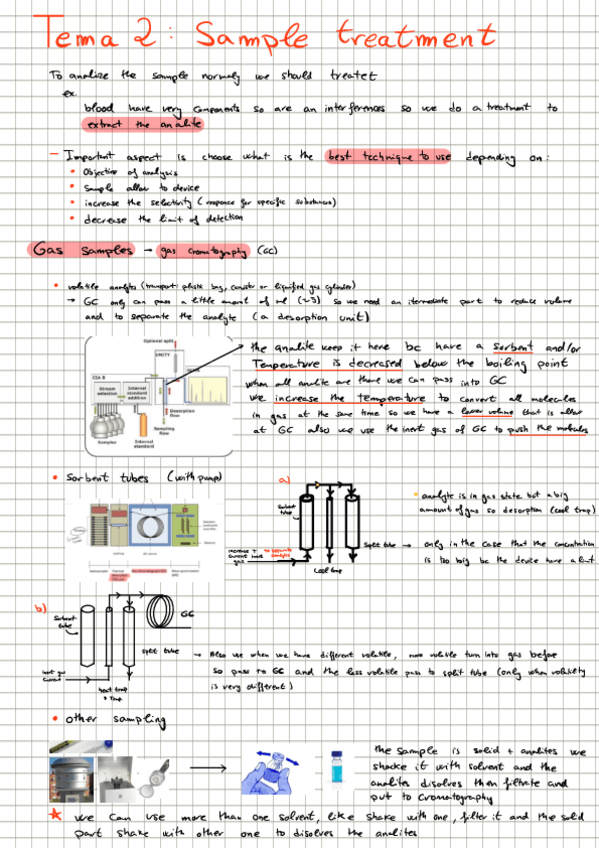 Tema 2: Sample treatment
To analize the sample normaly we should treatet
ex.
blood have very components so are an interferences so we do a treatment to
extract the analite
- Important aspect is choose what is the best technique to use depending on:
• Objective of analysis
• Sample allow to device
• increase the selectivity (response for specific substances)
• decrease the limit of detection
Gas samples → gas cromatography (GC)
• volatile analytes (transport: plastic bag, canister or liquified gas cylinder)
→ GC only can pass a little amount of ml (~3) so we need an itermediate part to reduce volume
and to separate the analyte (a desorption unit)
Optional split
UNITY
CIA 8
Stream selection
Internal standard addition
Desorption flow
Sampling flow
Samples
Internal standard
the analite keep it here bc have a sorbent and/or
Temperature is decreased below the boiling point
when all analite are there we can pass into GC
we increase the temperature to convert all molecules
in gas at the same time so we have a lower volume that is allow
at GC also we use the inert gas of GC to push the molecules
• Sorbent tubes (with pump)
a)
Sorbent tube
increase T to separate analytes
current inert gas
Cool trap
Split tube → only in the case that the concentration
is too big bc the device have a limit
• analyte is in gas state but a big
amount of gas so desorption (cool trap)
b)
Sorbent tube
GC
split tube
inert gas current
heat trap
↑ Temp.
→ Also use when we have different volatile, more volatile turn into gas before
so pass to GC and the less volatile pass to split tube (only when volatility
is very different)
• other sampling
the sample is solid + analites we
shacke it with solvent and the
analites disolves then filtrate and
put to cromatography
* we can use more than one solvent, like shake with one, filter it and the solid
part shake with other one to disolves the analites